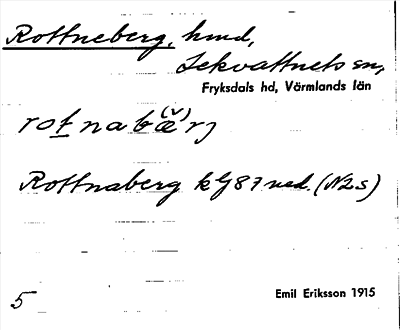 Rottneberg, hmd,
Lekvattnets sn,
Fryksdals hd, Värmlands län
rotnabærj
(v)
Rottnaberg kG87 ned. (N2S)
5
Emil Eriksson 1915